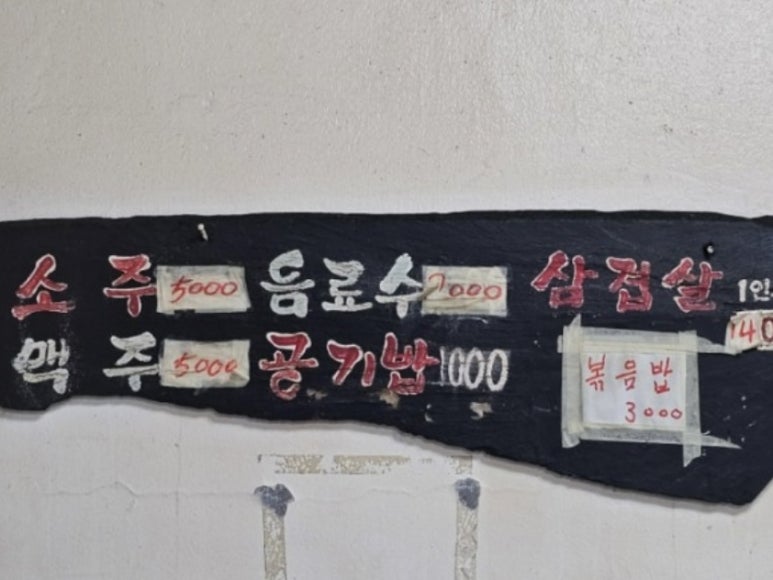 소주 5000 음료수 2000 삼겹살 1인
맥주 5000 공기밥 1000 140
볶음밥
3000